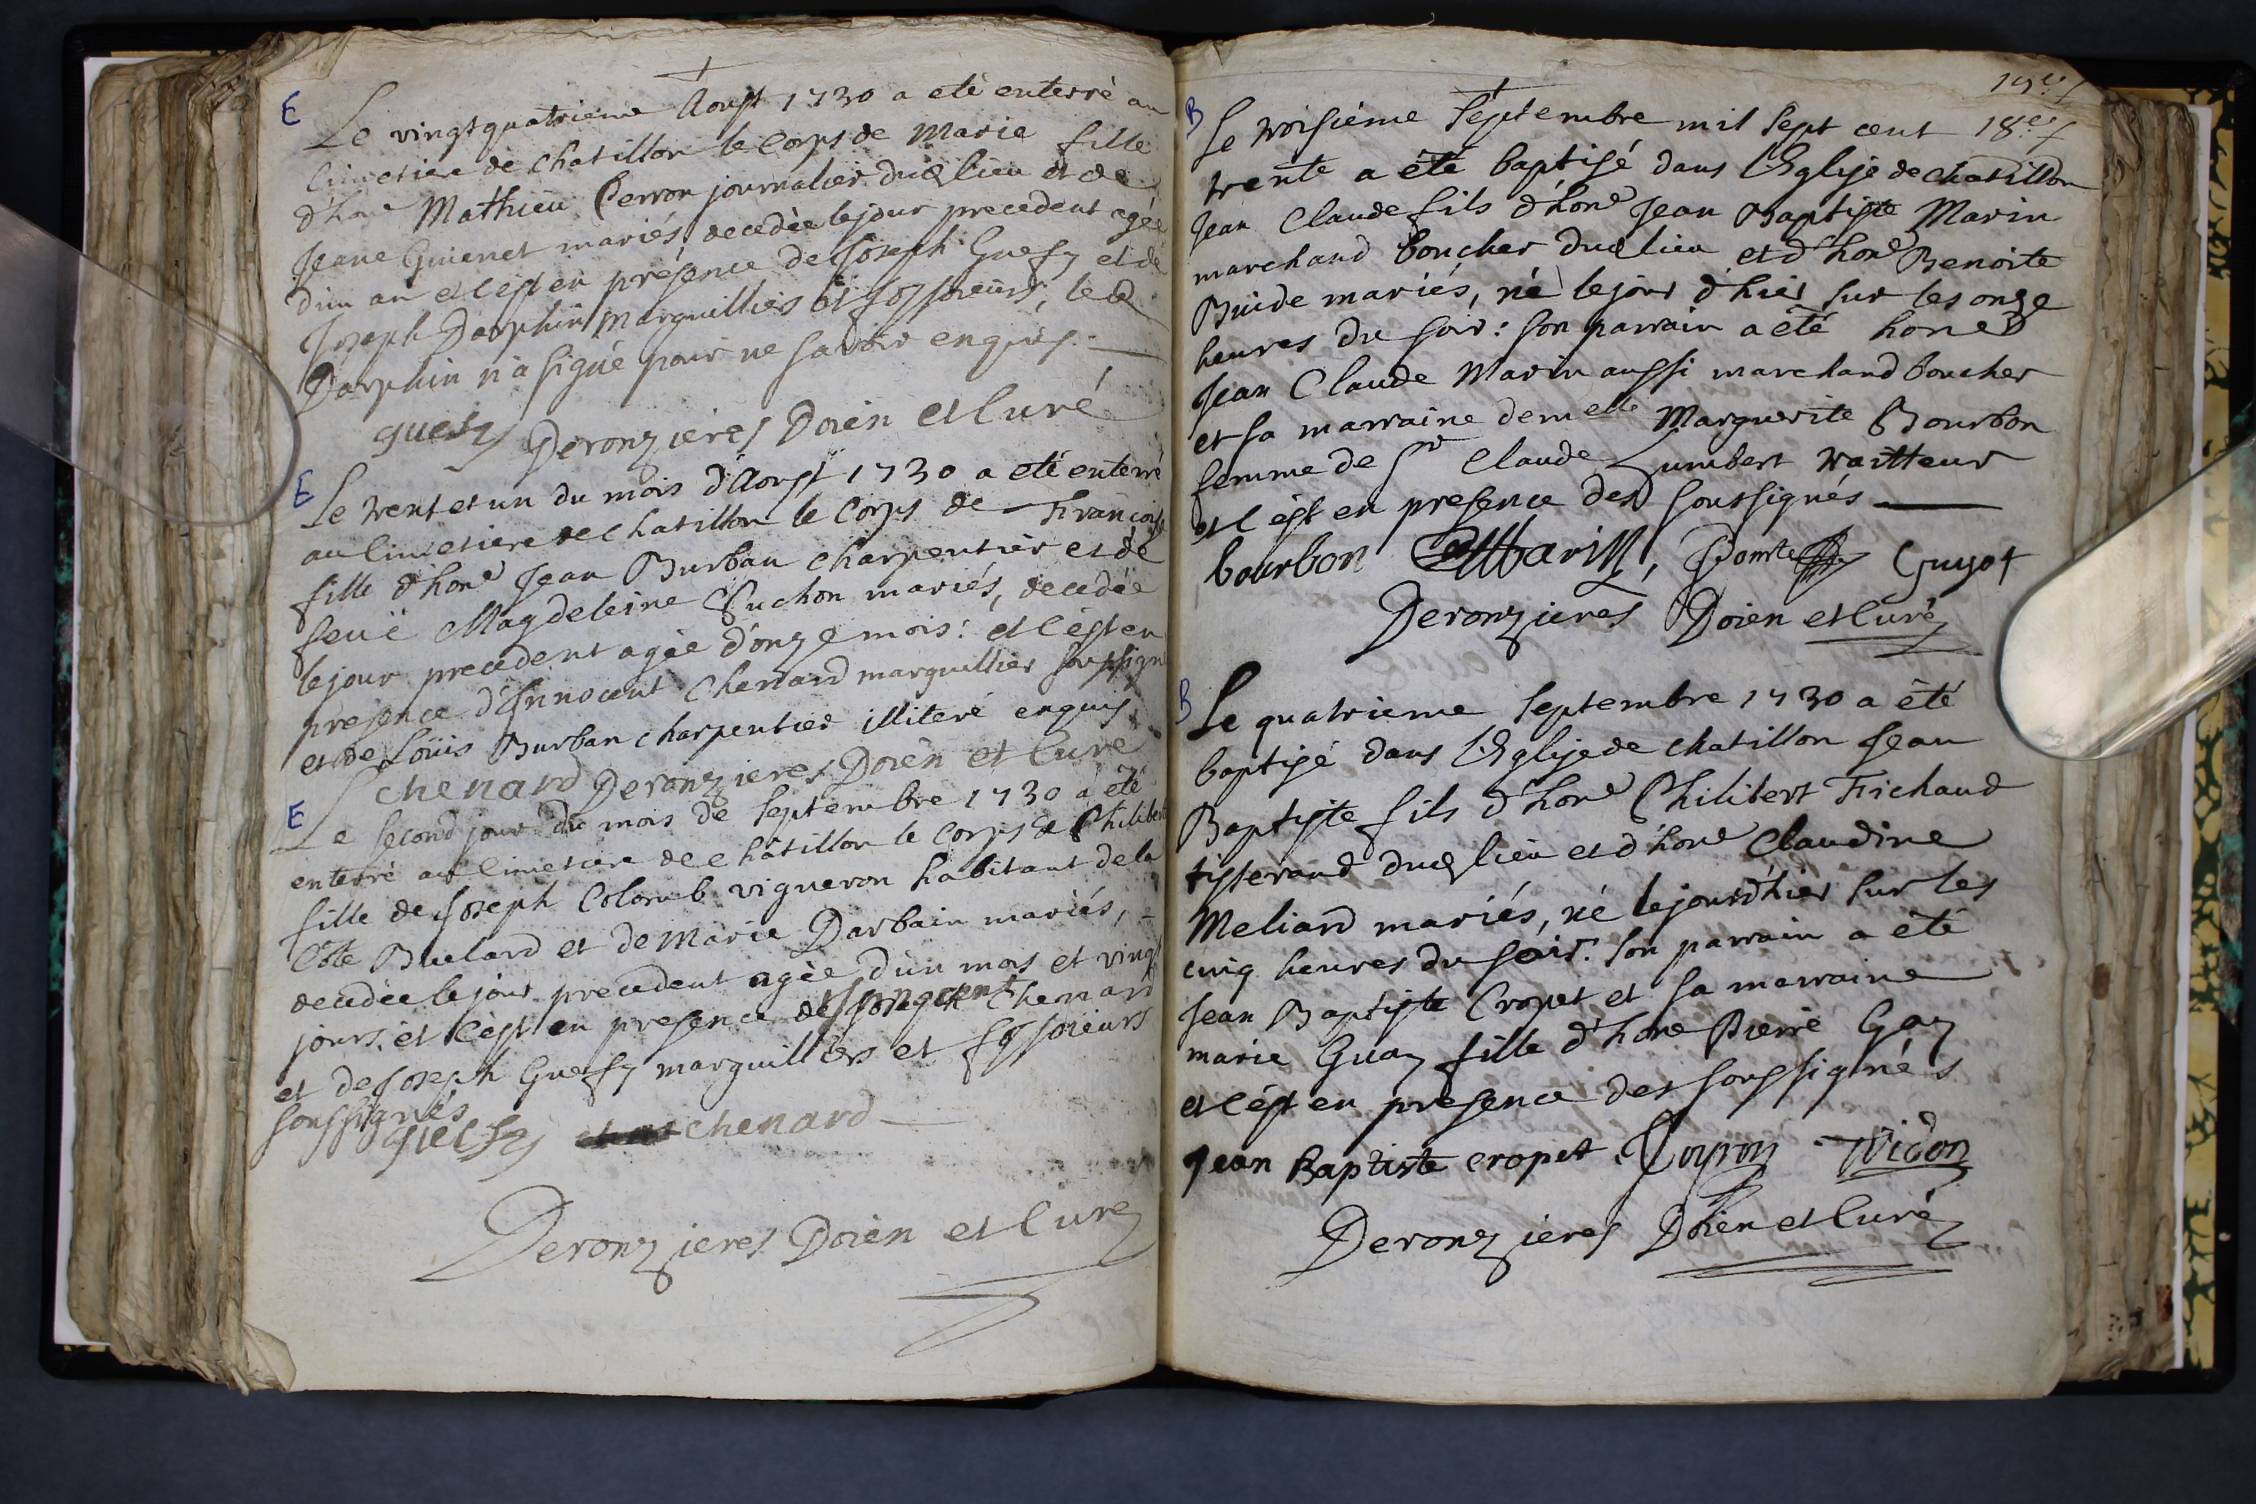 E
Le vingtquatrieme Aoust 1730 a eté enterré au
Cimetiere de chatillon le Corps de Marie fille
d'hone Mathieu Perron journalier dud lieu et de
Jeane Guienet mariés, decedée le jour precedent agée
d'un an et c'est en présence de Joseph Guesy et de
Joseph Darphin Marguilliers et fossoieurs, led
Darphin n'a signé pour ne savoir enquis.
guesy Deronzieres Doien et Curé
E
Le trent et un du mois d'Aoust 1730 a eté enterré
au Cimetiere de chatillon le Corps de Françoise
fille d'hone Jean Burban charpentier et de
feuë Magdeleine Suchon mariés, decedée
le jour precedent agée d'onze mois: et c'est en
presence d'Innocent Chenard marguillier soussigné
et de Loüis Burban charpentier illiteré enquis
chenard Deronzieres Doien et Curé
E
Le second jour du mois de septembre 1730 a été
enterré au Cimetiere de châtillon le Corps de Philiberte
fille de Joseph Colomb vigneron habitant de la
Côte Buelard et de Marie Darbain mariés,
decedée le jour precedent agée d'un mois et vingt
jours, et c'est en presence de Innocent Chenard
et de Joseph Guesy marguilliers et fossoieurs
soussignés
guesy chenard
Deronzieres Doien et Curé
19e
18e
B
Le troisiéme Séptembre mil sept cent
trente a été baptisé dans l'Eglise de chatillon
Jean Claude fils d'hone Jean Baptiste Marin
marchand boucher dud lieu et d'hone Benoite
Buide mariés, né le jour d'hier sur les onze
heures du soir: son parrain a été hone
Jean Claude Marin aussi marchand boucher
et sa marraine demelle Marguerite Bourbon
femme de Sr Claude Humbert traitteur
et c'est en presence des soussignés
bourbon Marin, Guyot
Deronzieres Doien et Curé
B
Le quatrieme Septembre 1730 a été
baptisé dans l'Eglise de chatillon Jean
Baptiste fils d'hone Philibert Fichaud
tisserand dud lieu et d'hone Claudine
Meliand mariés, né le jour d'hier sur les
cinq heures du soir: son parrain a été
Jean Baptiste Cropet et sa marraine
marie Guay fille d'hone Pierre Gay
et c'est en presence des soussignés
Jean Baptiste cropet Vidon
Deronzieres Doien et Curé